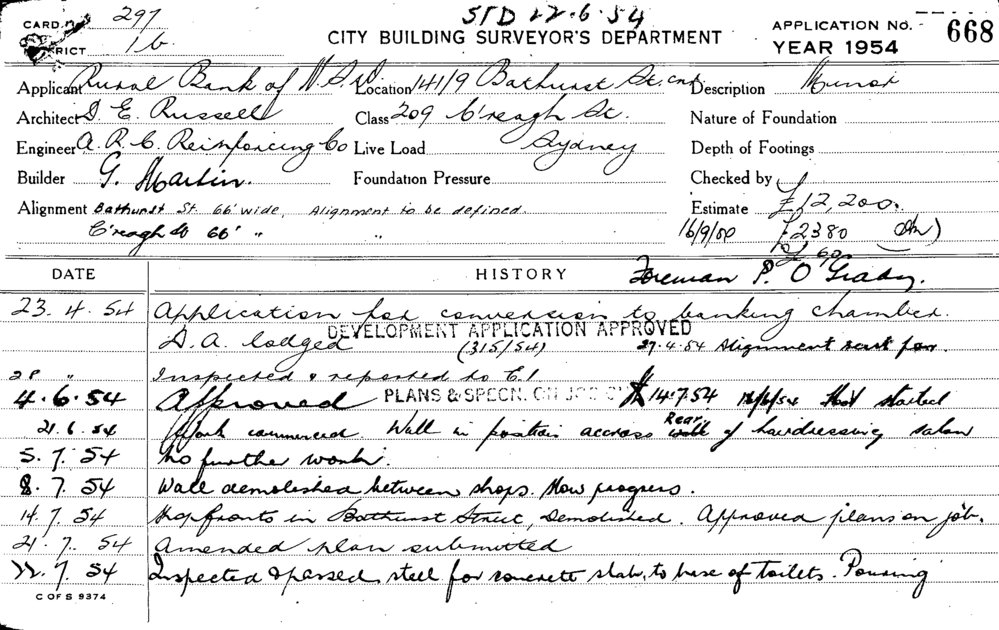 CARD No. 297 STD 22.6.54 APPLICATION No. 668
DISTRICT 16 CITY BUILDING SURVEYOR'S DEPARTMENT YEAR 1954
Applicant Rural Bank of N.S.W Location 141/9 Bathurst St. cnr Description
Architect D. E. Russell Class 209 C'reagh St. Nature of Foundation
Engineer A. R. C. Reinforcing Co Live Load Sydney Depth of Footings
Builder G. Martin. Foundation Pressure Checked by
Alignment Bathurst St. 66' wide, Alignment to be defined. Estimate £12,200.
C'reagh St 66' " " 16/9/ £2380
Foreman P. O'Grady.
DATE HISTORY
23.4.54 Application for conversion to banking chamber.
DEVELOPMENT APPLICATION APPROVED
D.A. lodged (315/54) 27.4.54 Alignment sent for.
28 " Inspected & reported to C.I
4.6.54 Approved PLANS & SPECN. ON JOB 14.7.54 Not started
21.6.54 Work commenced. Wall in position accross Rear of hairdressing salon
5.7.54 No further work.
8.7.54 Wall demolished between shops. Slow progress.
14.7.54 Shopfronts in Bathurst Street, Demolished. Approved plans on job.
21.7.54 Amended plan submitted
22.7.54 Inspected & passed steel for concrete slab, to base of toilets. Pouring
C OF S 9374